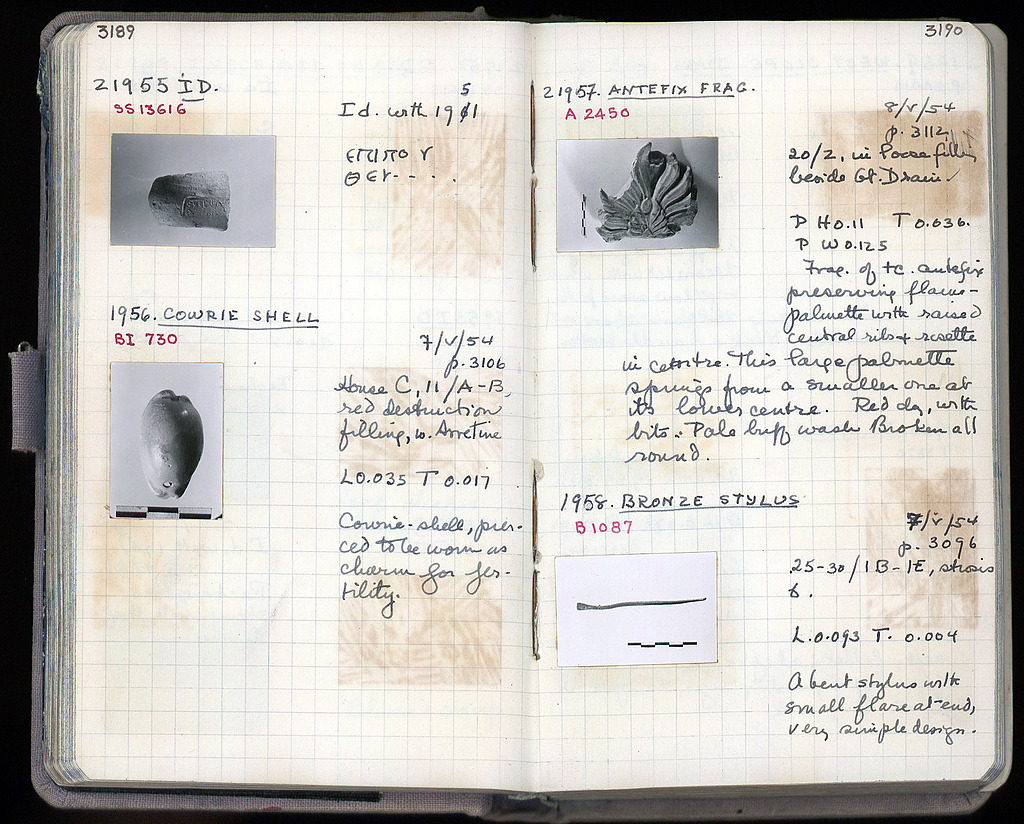 3189
21955 ID.
SS 13616
Id. with 1951
ЄΠΙΠΟ Υ
ΘЄΥ- - - .
1956. COWRIE SHELL
BI 730
7/V/54
p. 3106
House C, 11/A-B,
red destruction
filling, w. Arretine
L 0.035 T 0.017
Cowrie-shell, pier-
ced to be worn as
charm for fer-
tility.
3190
21957. ANTEFIX FRAG.
A 2450
8/V/54
p. 3112
20/Z, in loose filling
beside Gt. Drain.
P H 0.11 T 0.036.
P W 0.125
Frag. of tc. antefix
preserving flame-
palmette with raised
central ribs & rosette
in centre. This large palmette
springs from a smaller one at
its lower centre. Red clay, with
bits. Pale buff wash Broken all
round.
1958. BRONZE STYLUS
B 1087
7/V/54
p. 3096
25-30/1B-1E, strosis
6.
L. 0.093 T. 0.004
A bent stylus with
small flare at end,
very simple design.